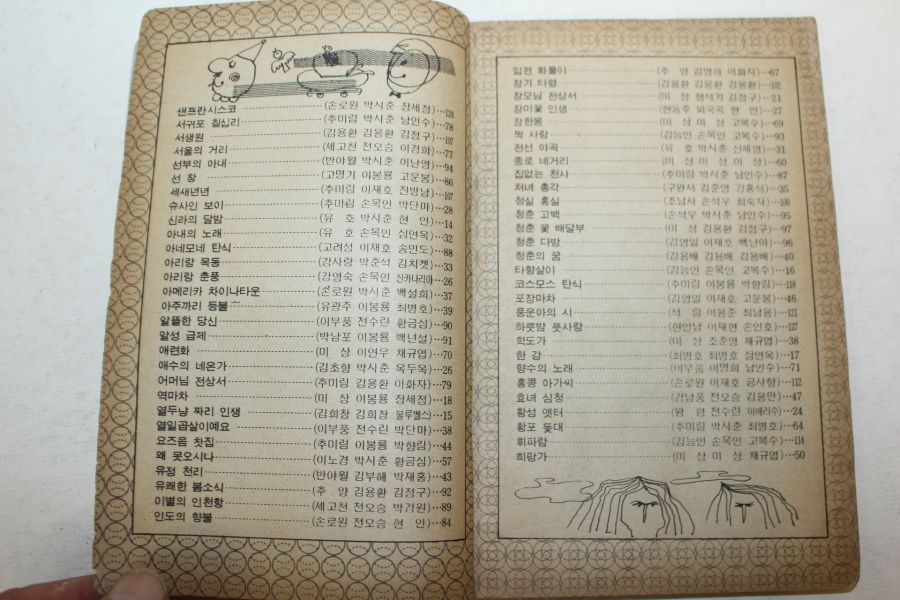 샌프란시스코 (손로원 박시춘 장세정)…128
서귀포 칠십리 (추미림 박시춘 남인수)…78
서생원 (김용환 김용환 김정구)…107
서울의 거리 (세고천 전오승 이경희)…77
선부의 아내 (반야월 박시춘 이난영)…94
선 창 (고명기 이봉룡 고운봉)…86
세세년년 (추미림 이재호 진방남)…107
슈사인 보이 (추미림 손목인 박단마)…28
신라의 달밤 (유 호 박시춘 현 인)…14
아내의 노래 (유 호 손목인 심연옥)…32
아네모네 탄식 (고려성 이재호 송민도)…88
아리랑 목동 (강사랑 박춘석 김치켓)…33
아리랑 춘풍 (강영숙 손목인 신카나리아)…26
아메리카 차이나타운 (손로원 박시춘 백설희)…37
아주까리 등불 (유광주 이봉룡 최병호)…39
알뜰한 당신 (이부풍 전수린 황금심)…90
알성 급제 (박남포 이봉룡 백년설)…91
애련화 (미 상 이연우 채규엽)…70
애수의 네온가 (김초향 박시춘 옥두옥)…26
어머님 전상서 (추미림 김용환 이화자)…79
역마차 (미 상 이봉룡 장세정)…18
열두냥 짜리 인생 (김희창 김희창 블루벨스)…15
열일곱살이예요 (이부풍 전수린 박단마)…38
요즈음 찻집 (추미림 이봉룡 박향림)…44
왜 못오시나 (이노경 박시춘 황금심)…57
유정 천리 (반야월 김부해 박재홍)…43
유쾌한 봄소식 (추 양 김용환 김정구)…92
이별의 인천항 (세고천 전오승 박경원)…89
인도의 향불 (손로원 전오승 현 인)…84
입전 화풀이 (추 양 김영파 이화자)…67
장기 타령 (김용환 김용환 김용환)…102
장모님 전상서 (미 상 형석기 김정구)…21
장미꽃 인생 (현동주 외국곡 현 인)…27
장한몽 (미 상 미 상 고복수)…69
짝 사랑 (김능인 손목인 고복수)…93
전선 야곡 (유 호 박시춘 신세영)…31
종로 네거리 (미 상 미 상 미 상)…60
집없는 천사 (추미림 박시춘 남인수)…87
처녀 총각 (구완서 김준영 강홍식)…35
청실 홍실 (조남사 손석우 최숙자)…100
청춘 고백 (손석우 박시춘 남인수)…95
청춘 꽃 배달부 (미 상 김용환 김정구)…97
청춘 다방 (김영일 이재호 백난아)…96
청춘의 꿈 (김용배 김용배 김용배)…40
타향살이 (김능인 손목인 고복수)…16
코스모스 탄식 (추미림 이봉룡 박향림)…118
포장마차 (김영일 이재호 고운봉)…46
풍운아의 시 (석 림 이용준 최남용)…121
하룻밤 풋사랑 (현인남 이재현 손인호)…127
학도가 (미 상 조춘영 채규엽)…38
한 강 (최병호 최병호 심연옥)…17
향수의 노래 (이부풍 이명희 남인수)…71
홍콩 아가씨 (손로원 이재호 금사향)…112
효녀 심청 (강남풍 전오승 김용만)…47
황성 옛터 (왕 평 전수린 이애리수)…24
황포 돛대 (추미림 박시춘 최병호)…64
휘파람 (김능인 손목인 고복수)…114
희망가 (미 상 미 상 채규엽)…50